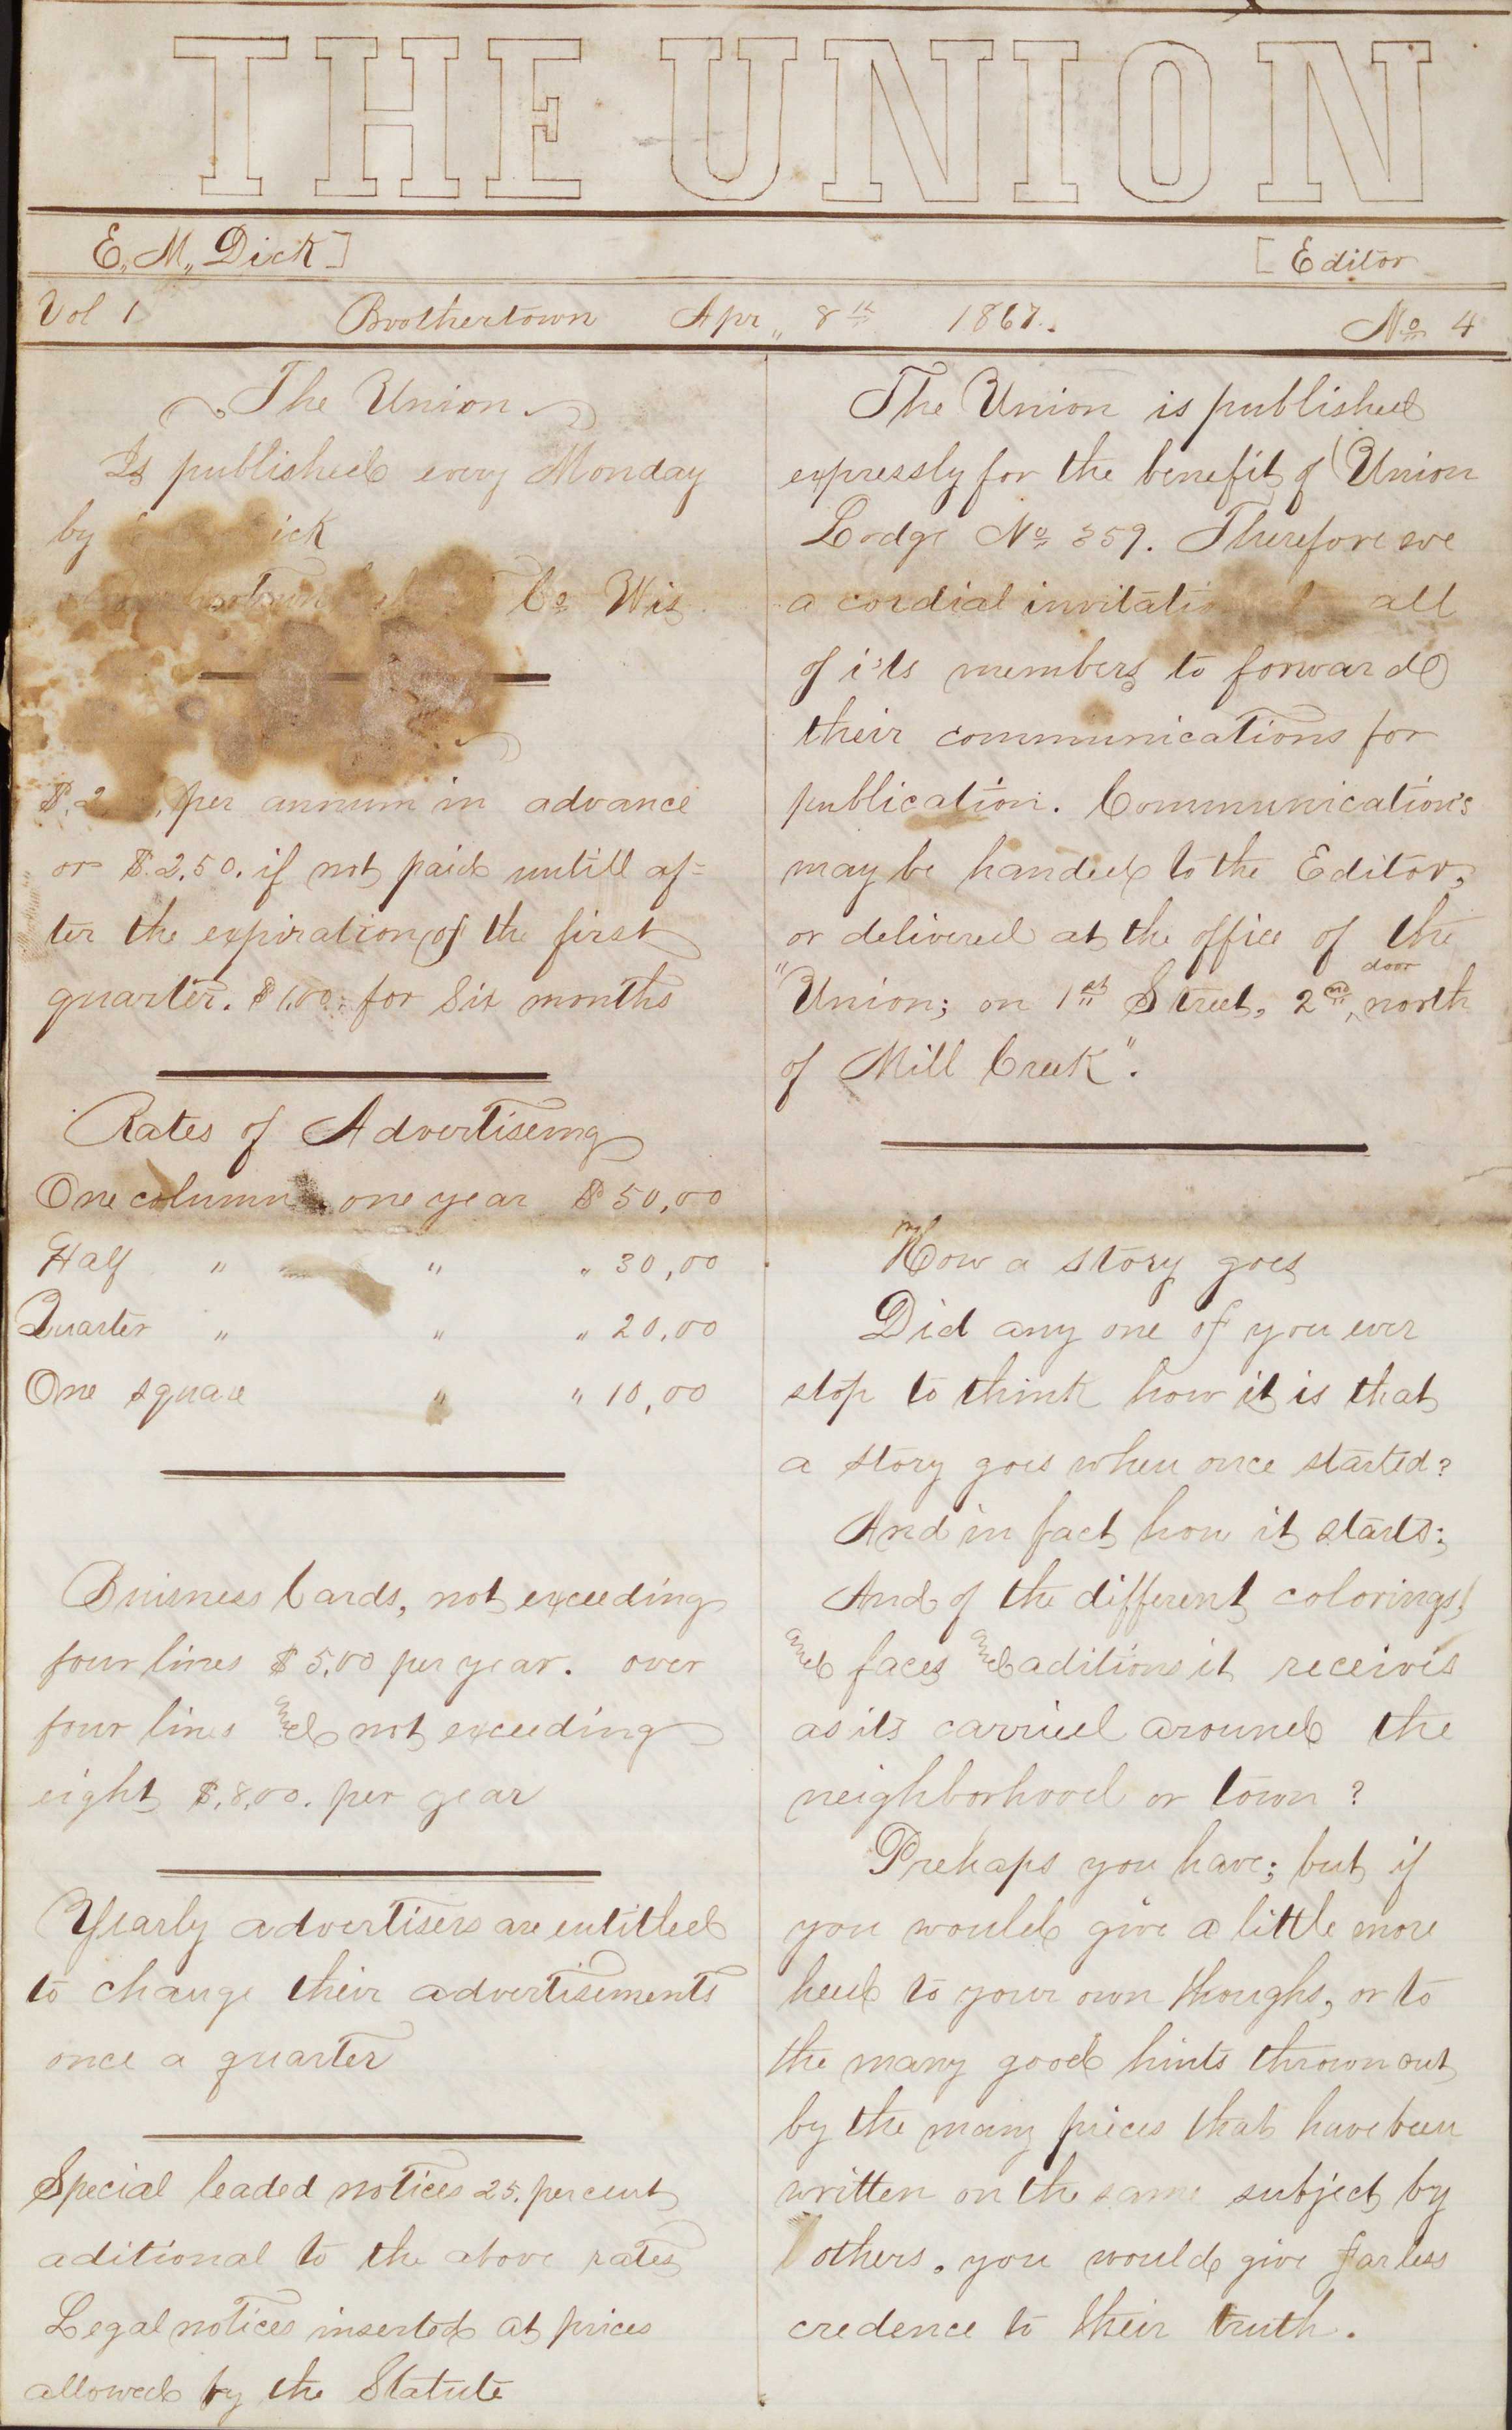 THE UNION
E. M. Dick] [Editor
Vol 1 Brothertown Apr 8th 1867. No 4
The Union
Is published every Monday
by ick
Co Wis
$.2 , per annum in advance
or $.2,50. if not paid untill af=
ter the expiration of the first
quarter. $1,00. for Six months
Rates of Advertiseing
One column one year $50,00
Half " " " 30,00
Quarter " " " 20,00
One square " " 10,00
Buisness Cards, not exceeding
four lines $5,00 per year. over
four lines and not exceeding
eight $.8,00. per year
Yearly advertisers are entitled
to change their advertisements
once a quarter
Special leaded notices 25. percent
aditional to the above rates
Legal notices inserted at prices
allowed by the Statute
The Union is published
expressly for the benefit of Union
Lodge No 359. Therefore we
a cordial invitatio all
of it's members to forward
their communications for
publication. Communication's
may be handed to the Editor,
or delivered at the office of the
"Union; on 1st Street, 2nd door north
of Mill Creek".
How a story goes
Did any one of you ever
stop to think how it is that
a story goes when once started?
And in fact how it starts;
And of the different colorings,
and faces and aditions it receives
as its carried around the
neighborhood or town ?
Prehaps you have; but if
you would give a little more
heed to your own thoughs, or to
the many good hints thrown out
by the many pieces that have been
written on the same subject by
others. you would give far less
credence to their truth.